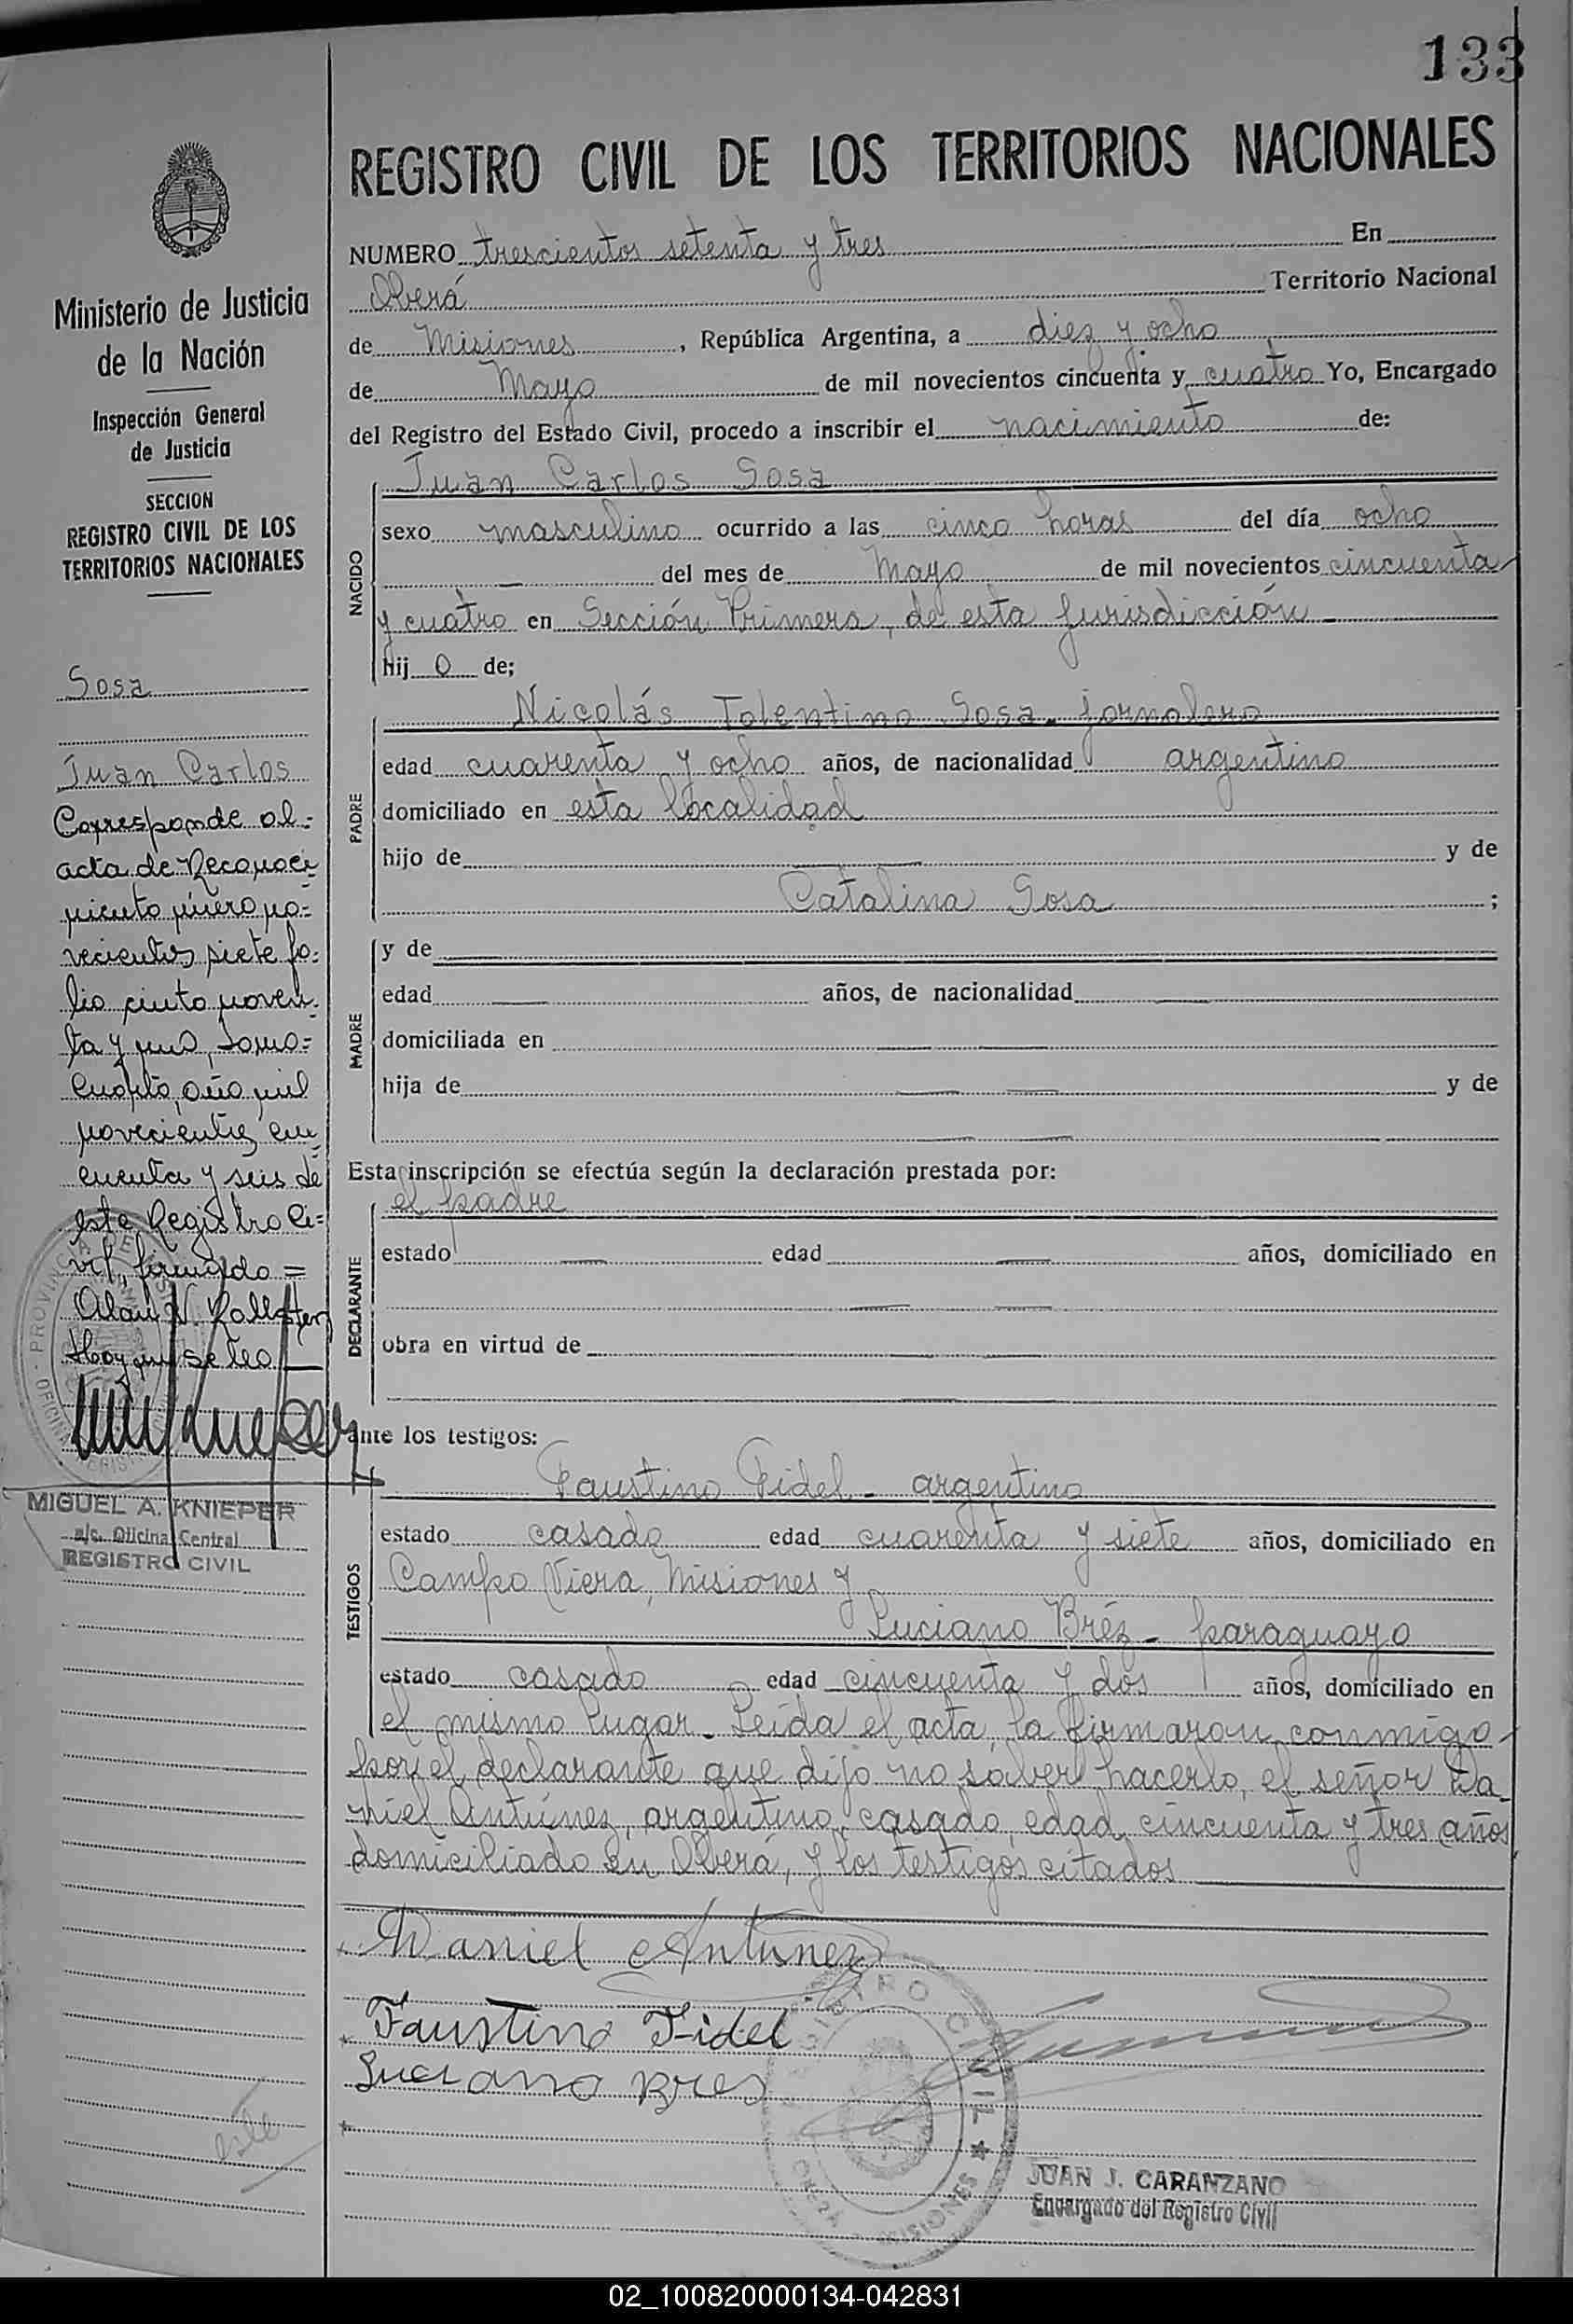 133
REGISTRO CIVIL DE LOS TERRITORIOS NACIONALES
NUMERO trescientos setenta y tres En
Oberá Territorio Nacional
de Misiones, República Argentina, a diez y ocho
de Mayo de mil novecientos cincuenta y cuatro Yo, Encargado
del Registro del Estado Civil, procedo a inscribir el nacimiento de:
NACIDO
Juan Carlos Sosa
sexo masculino ocurrido a las cinco horas del día ocho
del mes de Mayo de mil novecientos cincuenta
y cuatro en Sección Primera, de esta jurisdicción
hij o de;
PADRE
Nicolás Tolentino Sosa - jornalero
edad cuarenta y ocho años, de nacionalidad argentino
domiciliado en esta localidad
hijo de y de
Catalina Sosa ;
MADRE
y de
edad años, de nacionalidad
domiciliada en
hija de y de
Esta inscripción se efectúa según la declaración prestada por:
DECLARANTE
el padre
estado edad años, domiciliado en
obra en virtud de
ante los testigos:
TESTIGOS
Faustino Fidel - argentino
estado casado edad cuarenta y siete años, domiciliado en
Campo Viera, Misiones y
Luciano Bréz - paraguayo
estado casado edad cincuenta y dos años, domiciliado en
el mismo lugar - Leída el acta, la firmaron conmigo -
por el declarante que dijo no saber hacerlo, el señor Da-
niel Antúnez, argentino, casado, edad cincuenta y tres años
domiciliado en Oberá, y los testigos citados
Daniel Antunez
Faustino Fidel
Luciano Bres
REGISTRO CIVIL
MISIONES
JUAN J. CARANZANO
Encargado del Registro Civil
Ministerio de Justicia
de la Nación
Inspección General
de Justicia
SECCION
REGISTRO CIVIL DE LOS
TERRITORIOS NACIONALES
Sosa
Juan Carlos
Corresponde al=
acta de Reconoci=
miento número no=
vecientos siete fo=
lio ciento noven=
ta y uno, Tomo=
Cuarto, año mil
novecientos cin=
cuenta y seis de
este Registro Ci=
vil, firmado =
Hay un sello
MIGUEL A. KNIEPER
a/c. Oficina Central
REGISTRO CIVIL
02_100820000134-042831